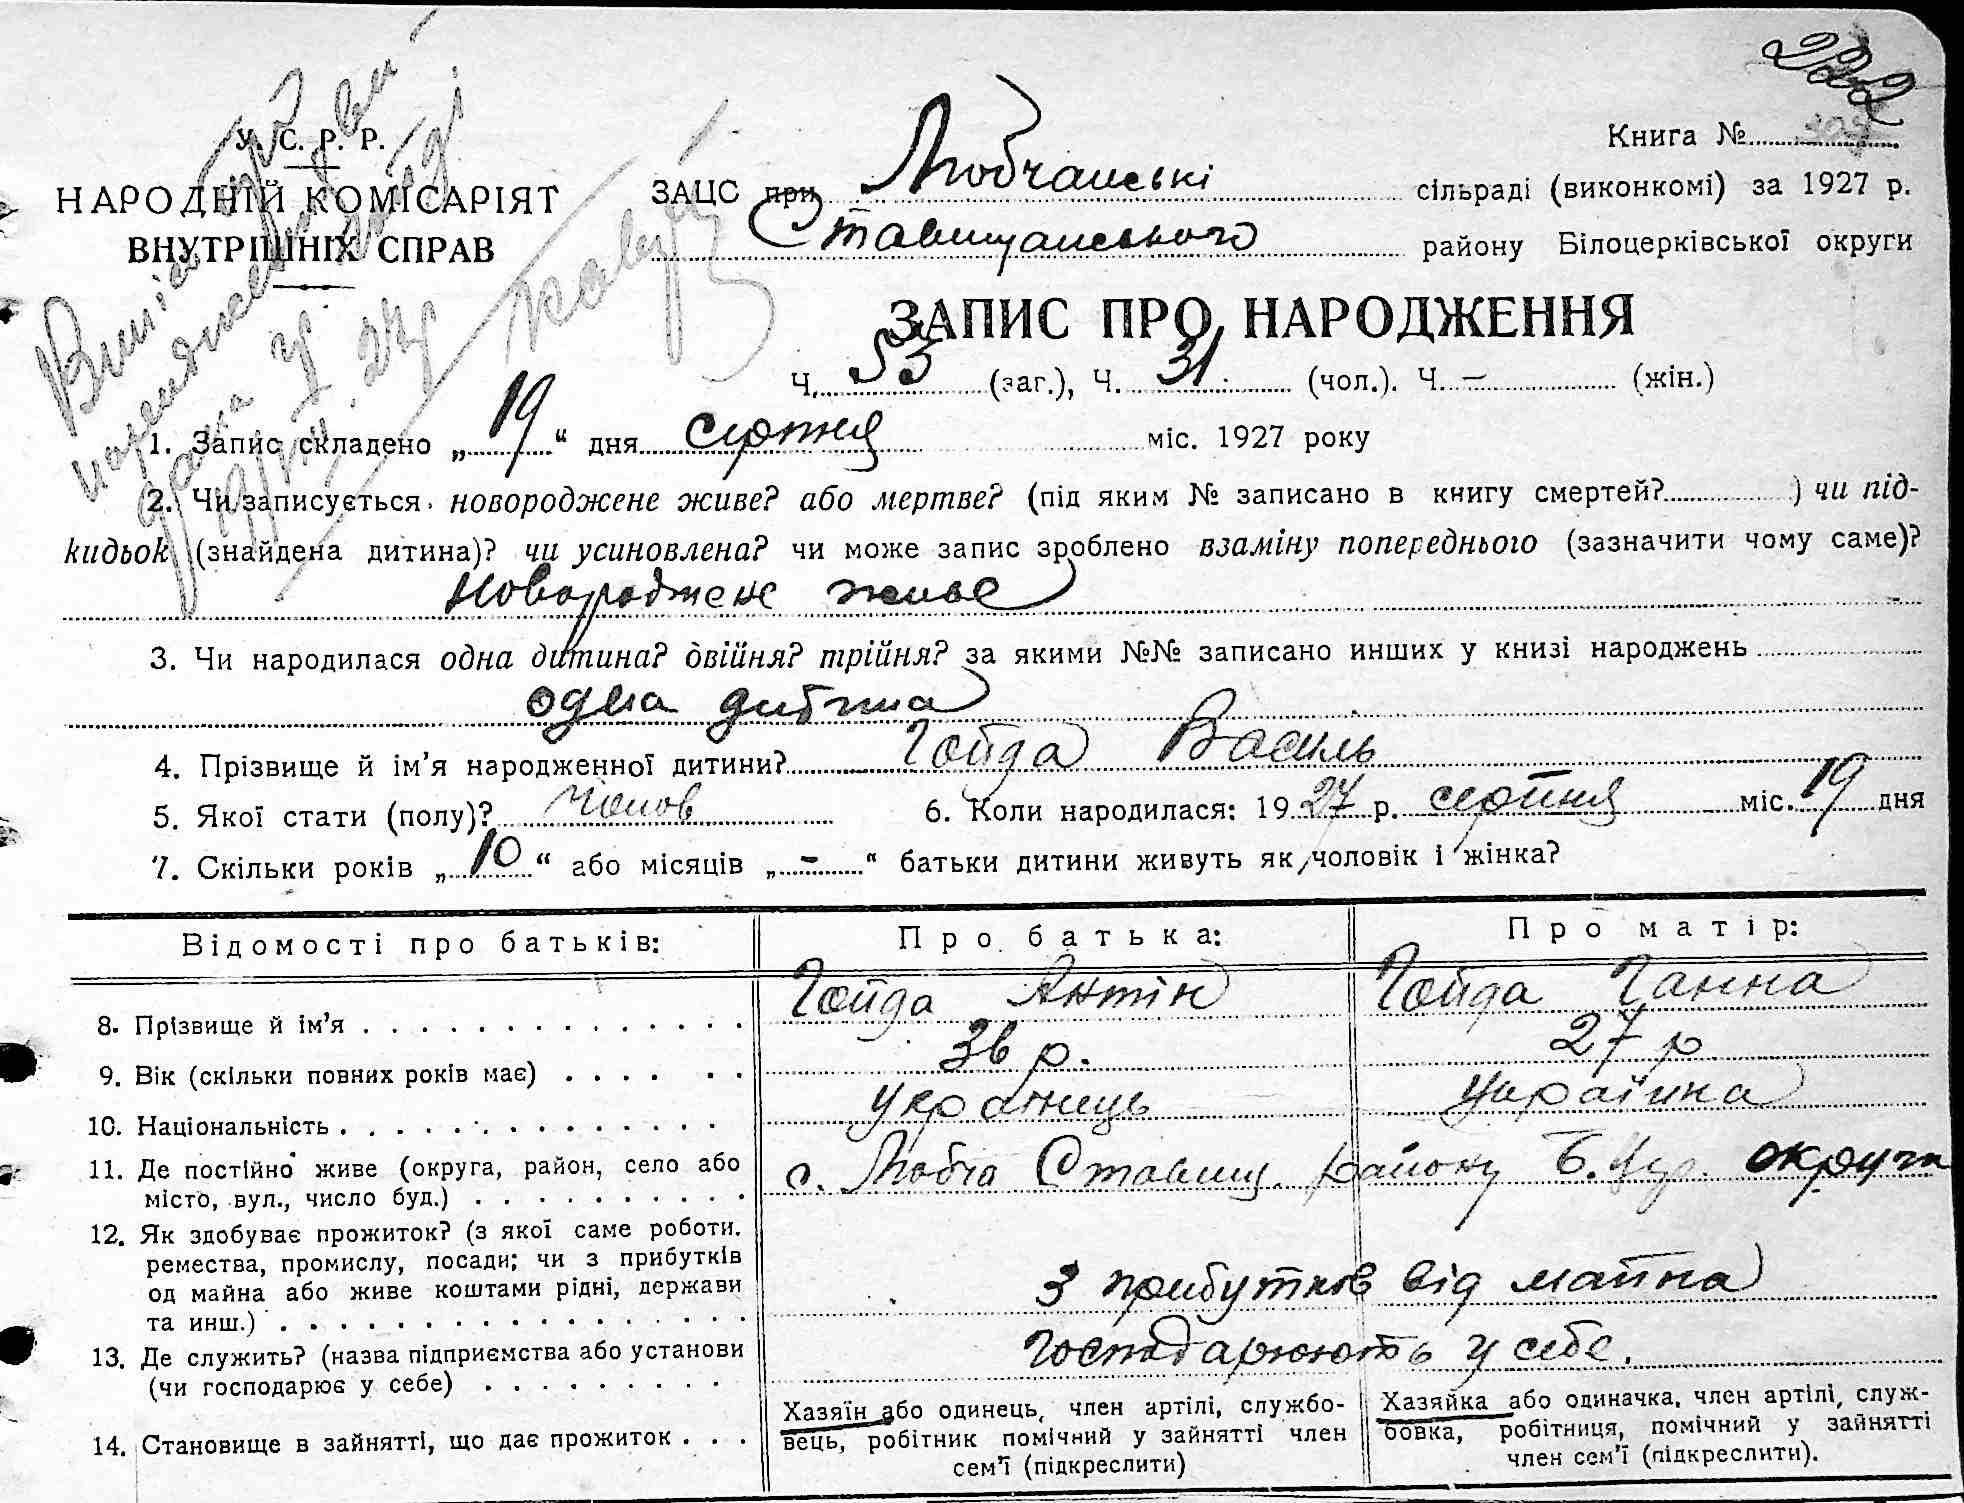 222
У. С. Р. Р.
НАРОДНІЙ КОМІСАРІЯТ
ВНУТРІШНІХ СПРАВ
Книга №
ЗАЦС при Любчанські сільраді (виконкомі) за 1927 р.
Ставищанського району Білоцерківської округи
ЗАПИС ПРО НАРОДЖЕННЯ
Ч. 53 (заг.), Ч. 31 (чол.). Ч. – (жін.)
1. Запис складено „ 19 “ дня серпня міс. 1927 року
2. Чи записується новороджене живе? або мертве? (під яким № записано в книгу смертей? ) чи під-
кидьок (знайдена дитина)? чи усиновлена? чи може запис зроблено взаміну попереднього (зазначити чому саме)?
Новороджене живе
3. Чи народилася одна дитина? двійня? трійня? за якими №№ записано инших у книзі народжень
одна дитина
4. Прізвище й ім’я народженної дитини? Гойда Василь
5. Якої стати (полу)? чолов 6. Коли народилася: 19 27 р. серпня міс. 19 дня
7. Скільки років „ 10 “ або місяців „ – “ батьки дитини живуть як чоловік і жінка?
Відомості про батьків: Про батька: Про матір:
8. Прізвище й ім’я Гойда Антін Гойда Ганна
9. Вік (скільки повних років має) 36 р. 27 р
10. Національність українець українка
11. Де постійно живе (округа, район, село або
місто, вул., число буд.) с. Любча Ставищ. району Б. Цер. округи
12. Як здобуває прожиток? (з якої саме роботи.
ремества, промислу, посади; чи з прибутків
од майна або живе коштами рідні, держави
та инш.) З прибутків від майна
13. Де служить? (назва підприємства або установи
(чи господарює у себе) Господарюють у себе.
14. Становище в зайнятті, що дає прожиток
Хазяїн або одинець, член артілі, службо-
вець, робітник помічний у зайнятті член
сем’ї (підкреслити)
Хазяйка або одиначка, член артілі, служ-
бовка, робітниця, помічний у зайнятті
член сем’ї (підкреслити).